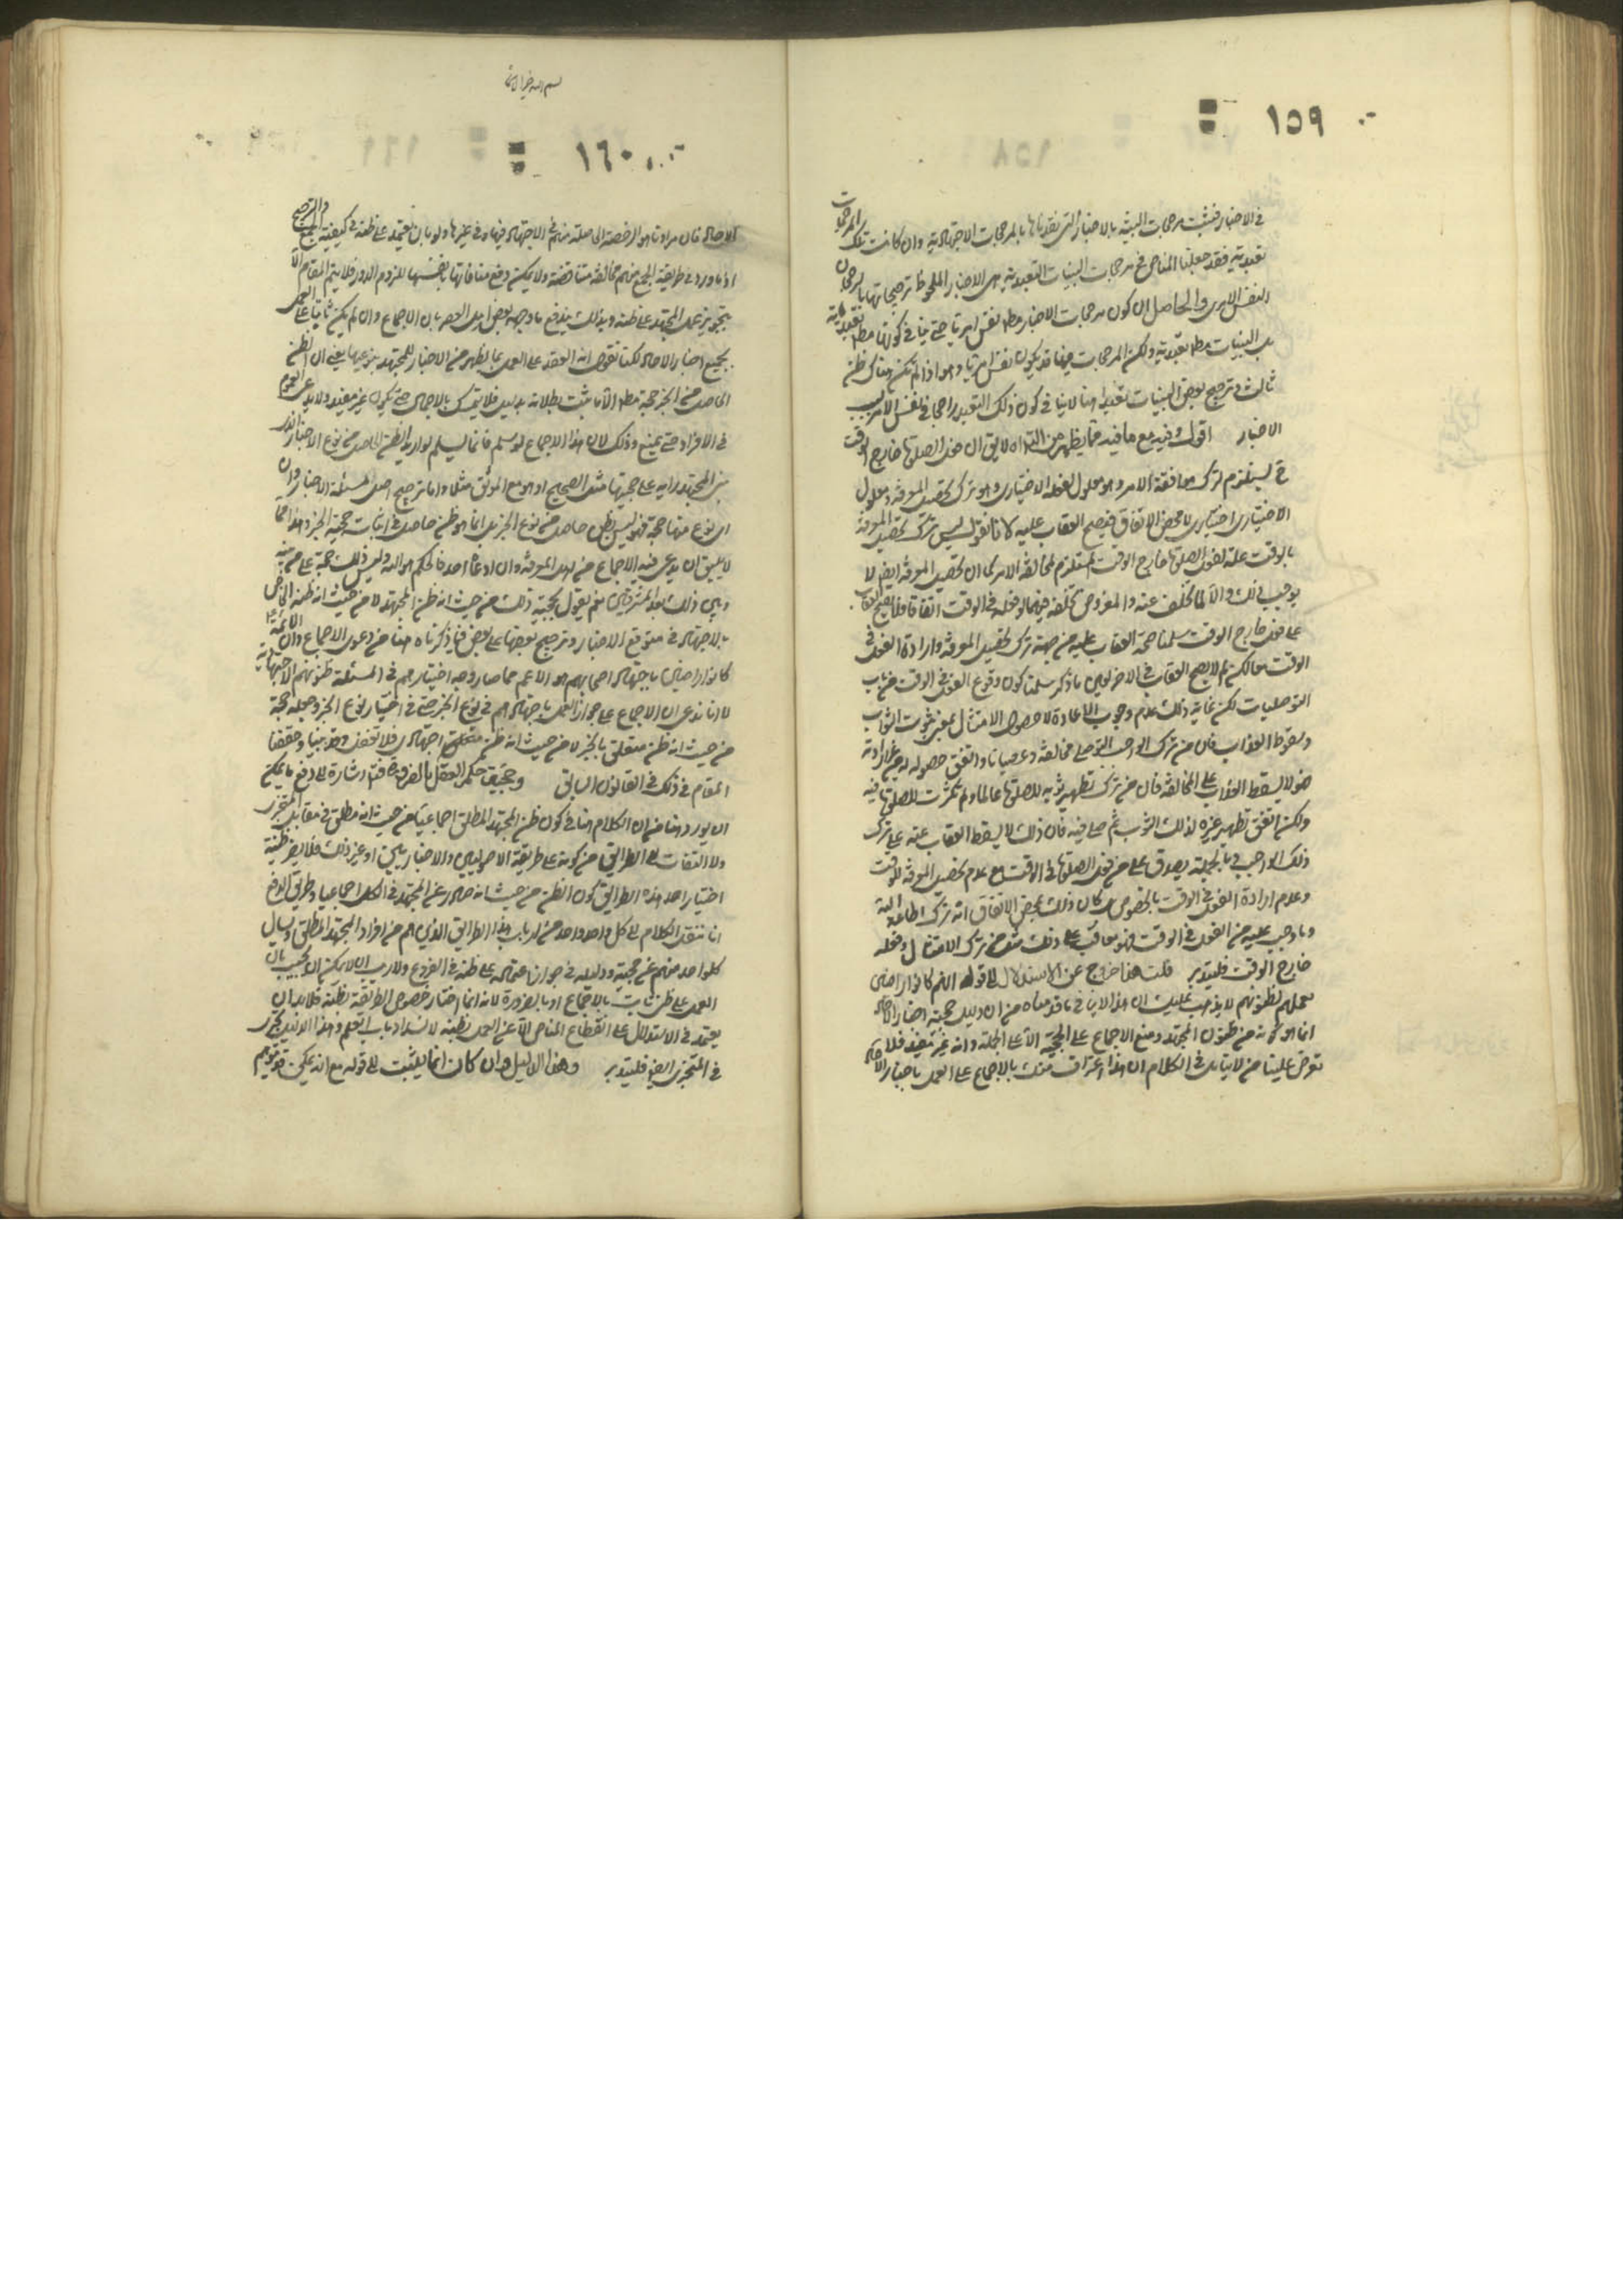 ١٥٩
في الاخبار فتثبت مرجحات البينة بالاخبار التي نقدناها بالمرجحات الاجتهادية وان كانت تلك المرجحات
تعبدية فقد جعلنا المناص في مرجحات البينات التعبدية هي الاخبار الملحوظ ترجيحاتها بالرجحان
النفس الامري والحاصل ان كون مرجحات الاخبار مط نفس امرية حتى ينافي كونها مط تعبدية
بل البينات مط تعبدية ولكن المرجحات فيها قد يكون نفس امريا وهو اذا لم يكن هناك ظن
ثالث وترجيح بعض البينات تعبدا هنا لا ينافي كون ذلك التعبد راجحا في نفس الامر بسبب
الاخبار اقول وفيه مع ما فيه مما يظهر من التزاه لا يق ان فعل الصلوة خارج الوقت
ح يستلزم ترك موافقة الامر وهو معلول لفعله الاختياري وهو ترك تحصيل المعرفة ومعلول
الاختياري اختياري لا محض الاتفاق فيصح العقاب عليه لانا نقول ليس ترك تحصيل المعرفة
بالوقت علة لفعل الصلوة خارج الوقت المستلزم لمخالفة الامر كما ان تحصيل المعرفة ايض لا
يوجب ذلك والا لما تخلف عنه والمفروض تخلفه فيما لو فعله في الوقت اتفاقا فلا يصح العقاب
على فعل خارج الوقت سلمنا صحة العقاب عليه من جهة ترك تحصيل المعرفة وارادة الفعل في
الوقت مع لكن لم لا يصح العقاب في الاخر لعين ما ذكر سلمنا كون وقوع الفعل في الوقت من باب
التوصليات لكن غاية ذلك عدم وجوب الاعادة لا حصول الامتثال بمعنى ثبوت الثواب
وسقوط العذاب فان من ترك الواجب التوصلي مخالفة وعصيانا واتفق حصوله له من غير ارادته
فهو لا يسقط العذاب على المخالفة فان من ترك تطهير ثوبه للصلوة عالما ولم يكترث للصلوة فيه
ولكن اتفق تطهير غيره لذلك الثوب ثم صلى فيه فان ذلك لا يسقط العقاب عنه على ترك
ذلك الواجب وبالجملة يصدق على من فعل الصلوة في الوقت مع عدم تحصيل المعرفة للوقت
وعدم ارادة الفعل في الوقت بالخصوص وكان ذلك بمحض الاتفاق انه ترك اطاعة الله
وما وجب عليه من الفعل في الوقت فهو معاقب على ذلك مثل من ترك الامتثال وفعله
خارج الوقت فليتدبر قلت هذا خارج عن الاستدلال الى قوله انهم كانوا راضين
بعملهم بظنونهم لا يذهب عليك ان هذا لا ينافي ما قدمناه من ان دليل حجية اخبار الاحاد
انما هو كونه من ظنون المجتهد ومنع الاجماع على الحجية الا على الجملة وانه غير مفيد فلا
تعرض علينا من لا يتامل في الكلام ان هذا اعتراف منك بالاجماع على العمل باخبار الاحاد
بسم الله خير الاسماء
١٦٠
الاحاد فان مرادنا هو الرخصة الحاصلة منهم في الاجتهاد فيها وفي غيرها ولو بان يعتمد على ظنه في كيفية الجمع والترجيح
اذ ما ورد في طريقة الجمع منهم مختلفة متناقضة ولا يمكن دفع منافاتها بانفسها للزوم الدور فلا يتم المقام الا
بتجويز عمل المجتهد على ظنه وبذلك يندفع ما وجهه بعض اهل العصر بان الاجماع وان لم يكن ثابتا على العمل
بجميع اخبار الاحاد لكنا نقول انه انعقد على العمل بما يظهر من الاخبار للمجتهد بنوعيها يعني ان الظن
الحاصل من الخبر حجة مط الا ما ثبت بطلانه بدليل فلا يتمسك بالاجمال حتى يكون غير مفيد ولا يدعى العموم
في الافراد حتى يمنع وذلك لان هذا الاجماع لو سلم فانما يسلم لو اريد الظن الحاصل من نوع الاخبار الذي
بنى المجتهد رايه على حجيتها مثل الصحيح او هو مع الموثق مثلا واما ترجيح اصل المسئلة الاخبار وان
اي نوع منها حجة فهو ليس بظن حاصل من نوع الخبر بل انما هو ظن حاصل في اثبات حجية الخبر وهذا مما
لا يليق ان يدعى فيه الاجماع من اهل المعرفة وان ادعاه احد فالحكم هو الله وليس ذلك حجة على من بينه
وبين ذلك بعد المشرقين نعم يقول بحجية ذلك من حيث انه ظن المجتهد لا من حيث انه ظنه الخاص
بالاجتهاد في تنويع الاخبار وترجيح بعضها على بعض فما ذكرناه هنا من دعوى الاجماع وان الائمة ع
كانوا راضين باجتهاد اصحابهم هو الاعم مما صار وجه اختيارهم في المسئلة ظنونهم الاجتهادية
لا انا ندعي ان الاجماع على جواز العمل باجتهادهم في نوع الخبر حتى في اختيار نوع الخبر وجعله حجة
من حيث انه ظن متعلق بالخبر لا من حيث انه ظن متعلق اجتهادي فلا تغفل وقد بينا وحققنا
المقام في ذلك في القانون السابق وتحقيق حكم العقل بالضرورة فتم اشارة الى دفع ما يمكن
ان يورد هنا من ان الكلام هنا في كون ظن المجتهد المطلق اجماعيا من حيث انه مطلق في مقابل المتجزي
ولا التفات الى الطرائق من كونه على طريقة الاصوليين والاخباريين او غير ذلك فلا يضر ظنية
اختيار احد هذه الطرائق كون الظن من حيث انه صادر عن المجتهد في الكل اجماعيا وطريق الدفع
انا ننقل الكلام الى كل واحد واحد من ارباب هذا الطرائق الذين هم من افراد المجتهد المطلق ونسال
كل واحد منهم عن حجيته ودليله في جواز اعتماده على ظنه في الفروع ولا ريب انه لا يمكن ان يجيب بان
العمل على ظن ثابت بالاجماع او بالضرورة لانه انما اختار خصوص الطريقة بظنه فلا بد ان
يعتمد في الاستدلال على انقطاع المناص الا عن العمل بظنه لانسداد باب العلم وهذا الدليل يجري
في المتجزي ايض فليتدبر وهذا الدليل وان كان انما يثبت الى قوله مع انه يمكن تتميم